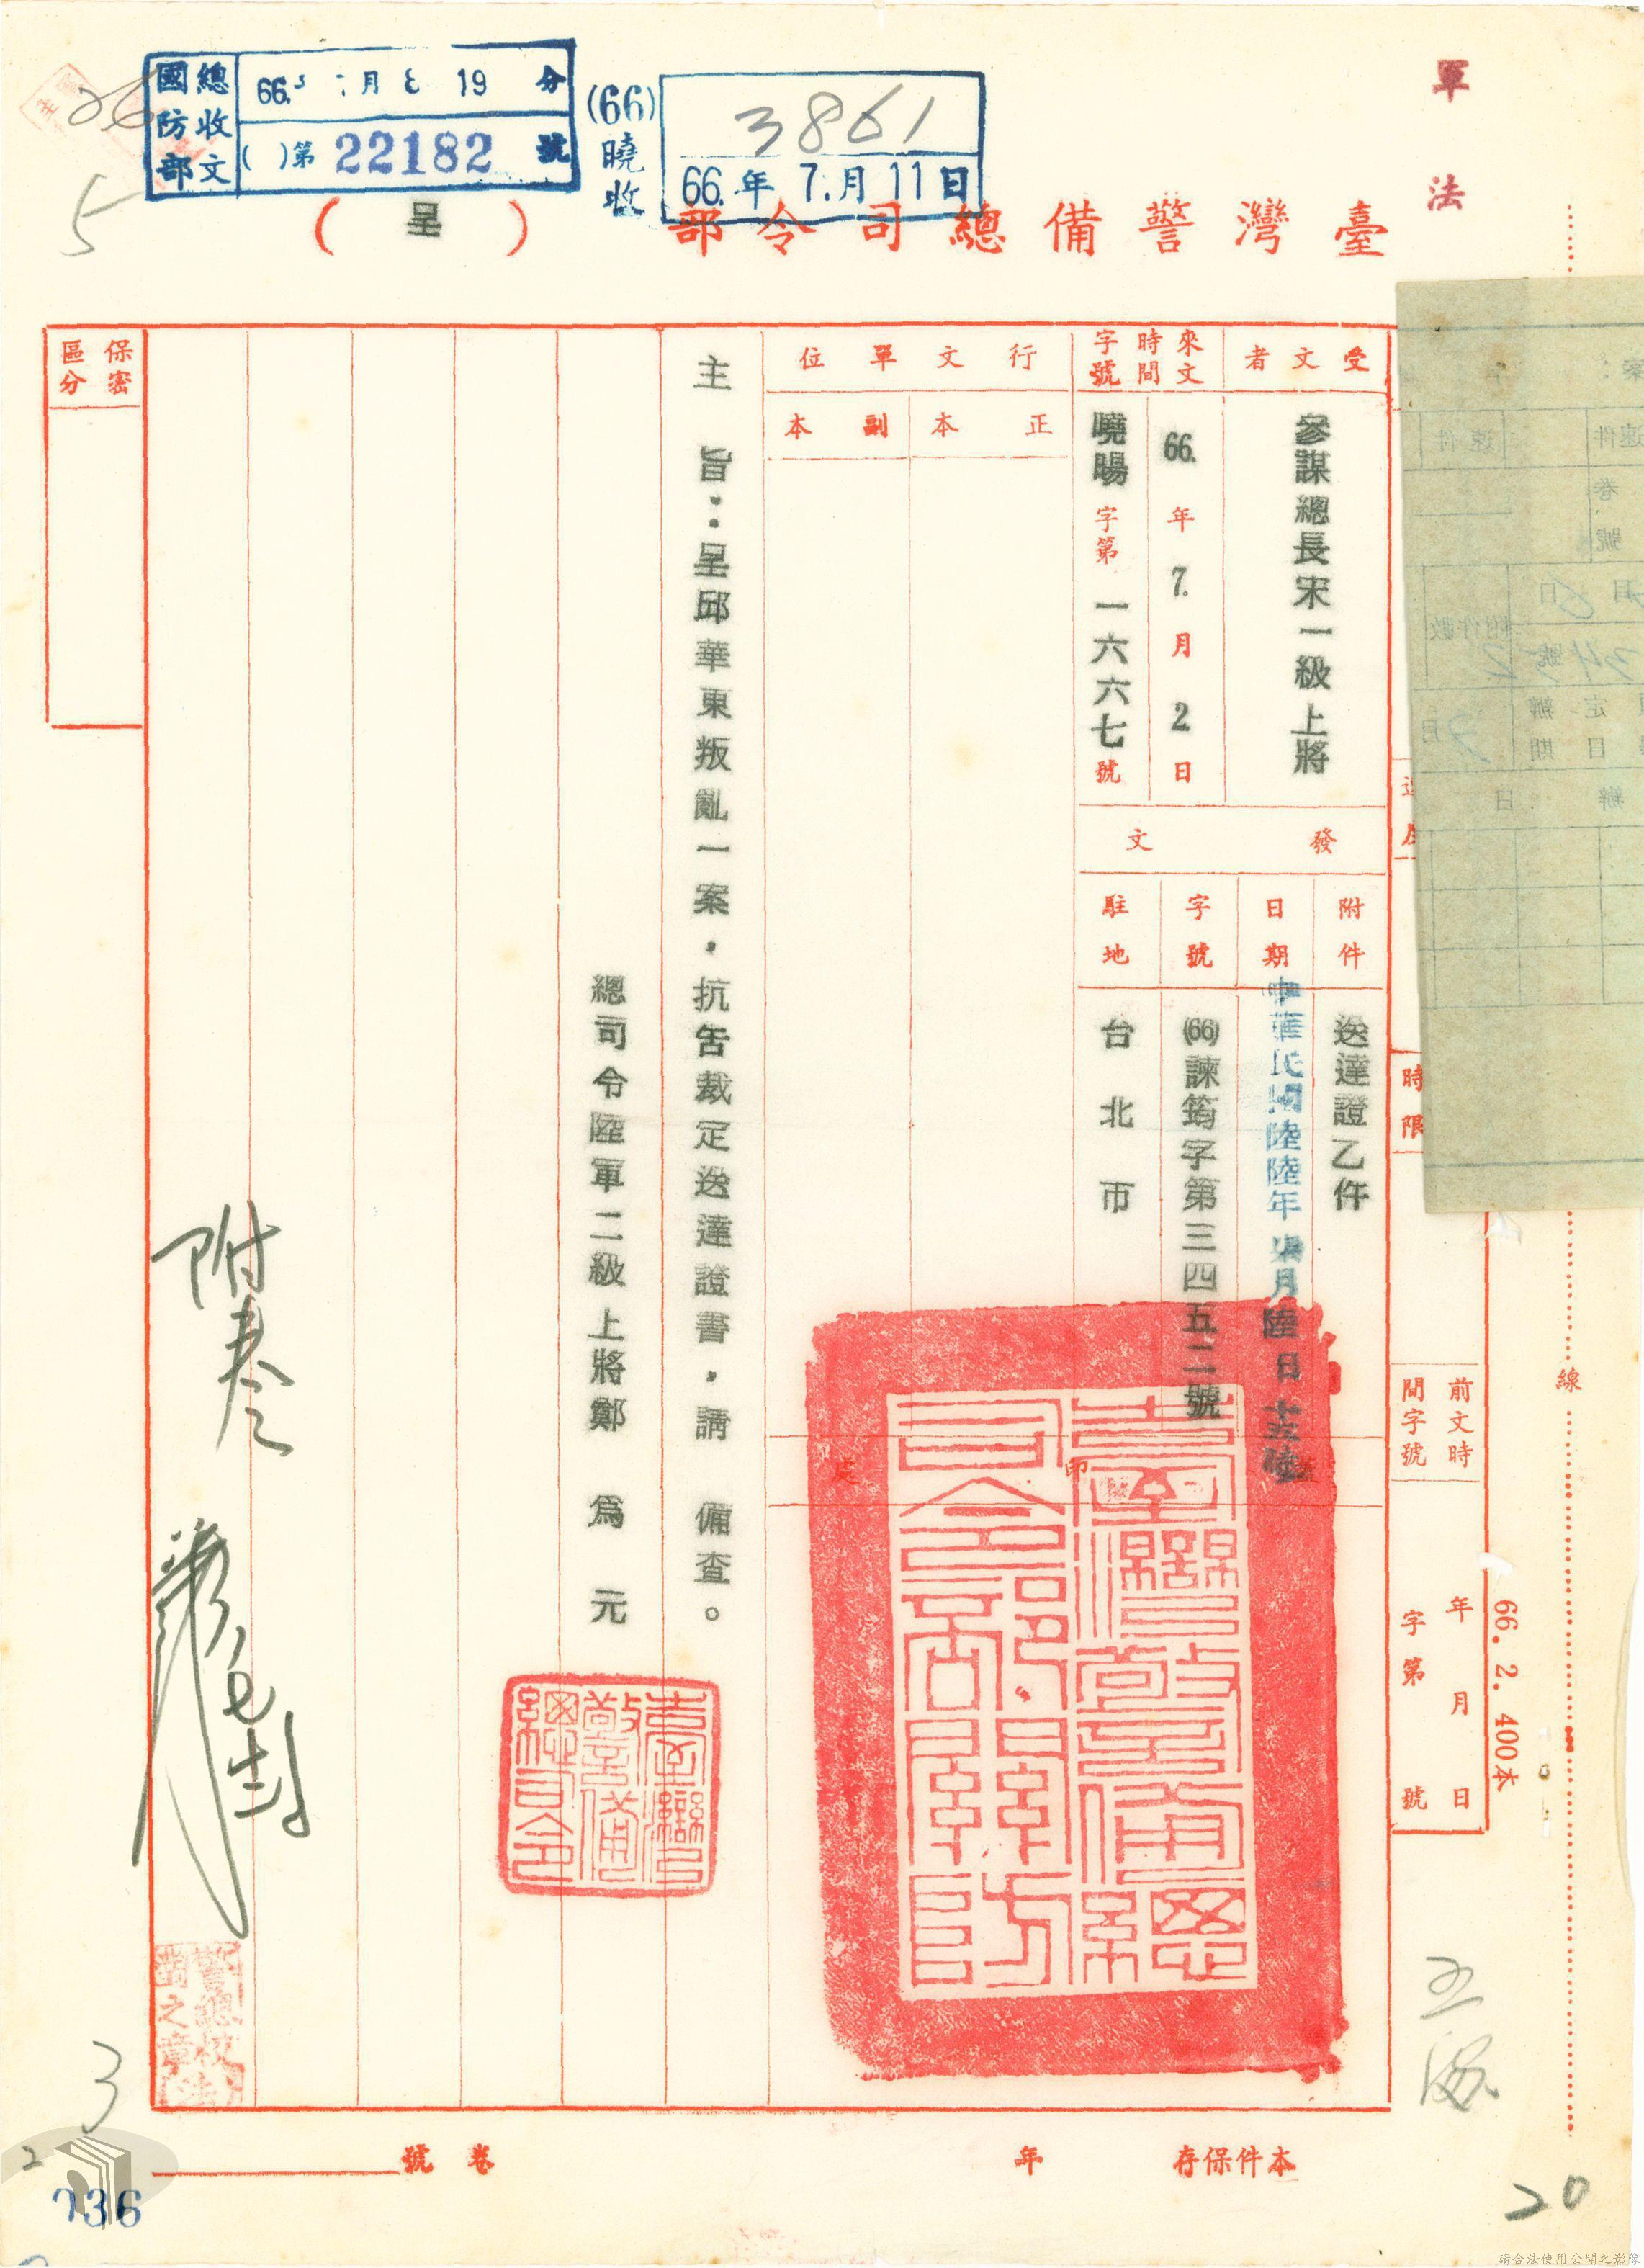 軍法
國防部
總收文
66. 月 19 分
( )第 22182 號
(66)
曉收
3861
66.年 7.月11日
5
臺灣警備總司令部
(呈)
受文者
參謀總長宋一級上將
來文時間字號
66.年7.月2日
曉暘字第一六六七號
行文單位
正本
副本
發文
附件
送達證乙件
日期
中華民國陸陸年柒月陸日
字號
(66)諫筠字第三四五二號
駐地
台北市
主旨：呈邱華東叛亂一案，抗告裁定送達證書，請 備查。
總司令陸軍二級上將鄭為元
臺灣警備總司令部關防
臺灣警備總司令
保密區分
附卷
時限
前文時間字號
年月日
字第號
66. 2. 400本
線
本件保存 年
卷號
3
2
036
20
請合法使用公開之影像